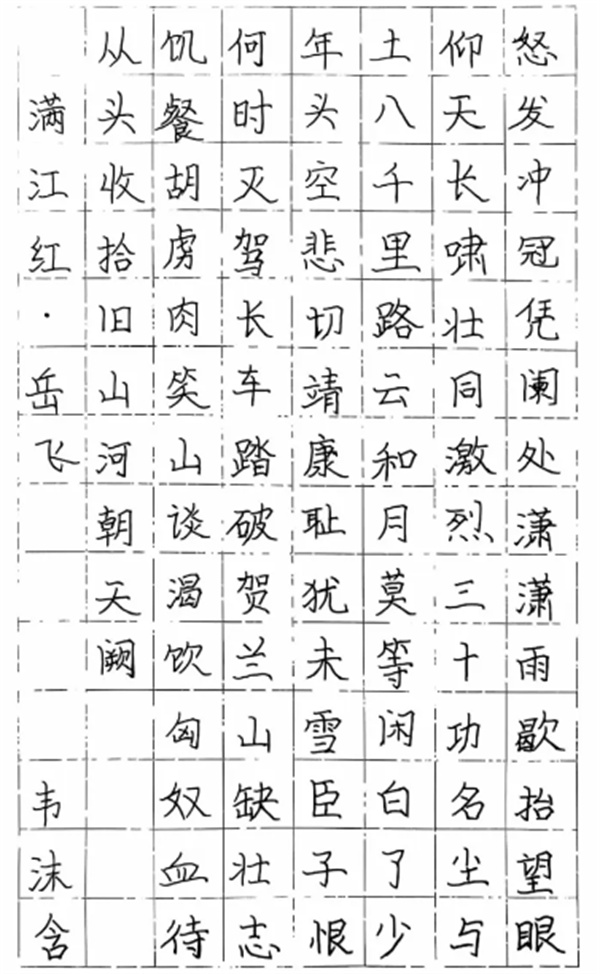 怒发冲冠凭阑处潇潇雨歇抬望眼
仰天长啸壮同激烈三十功名尘与
土八千里路云和月莫等闲白了少
年头空悲切靖康耻犹未雪臣子恨
何时灭驾长车踏破贺兰山缺壮志
饥餐胡虏肉笑山谈渴饮匈奴血待
从头收拾旧山河朝天阙
满江红·岳飞 韦沫含